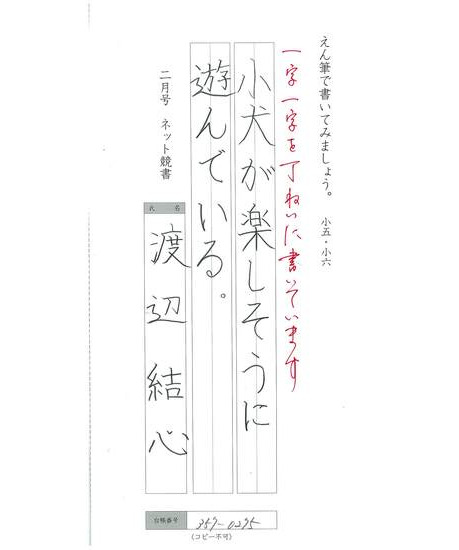 えん筆で書いてみましょう。 小五・小六
一字一字を丁ねいに書いています
小犬が楽しそうに
遊んでいる。
二月号 ネット競書
氏名
渡辺結心
台帳番号
359-0295
(コピー不可)